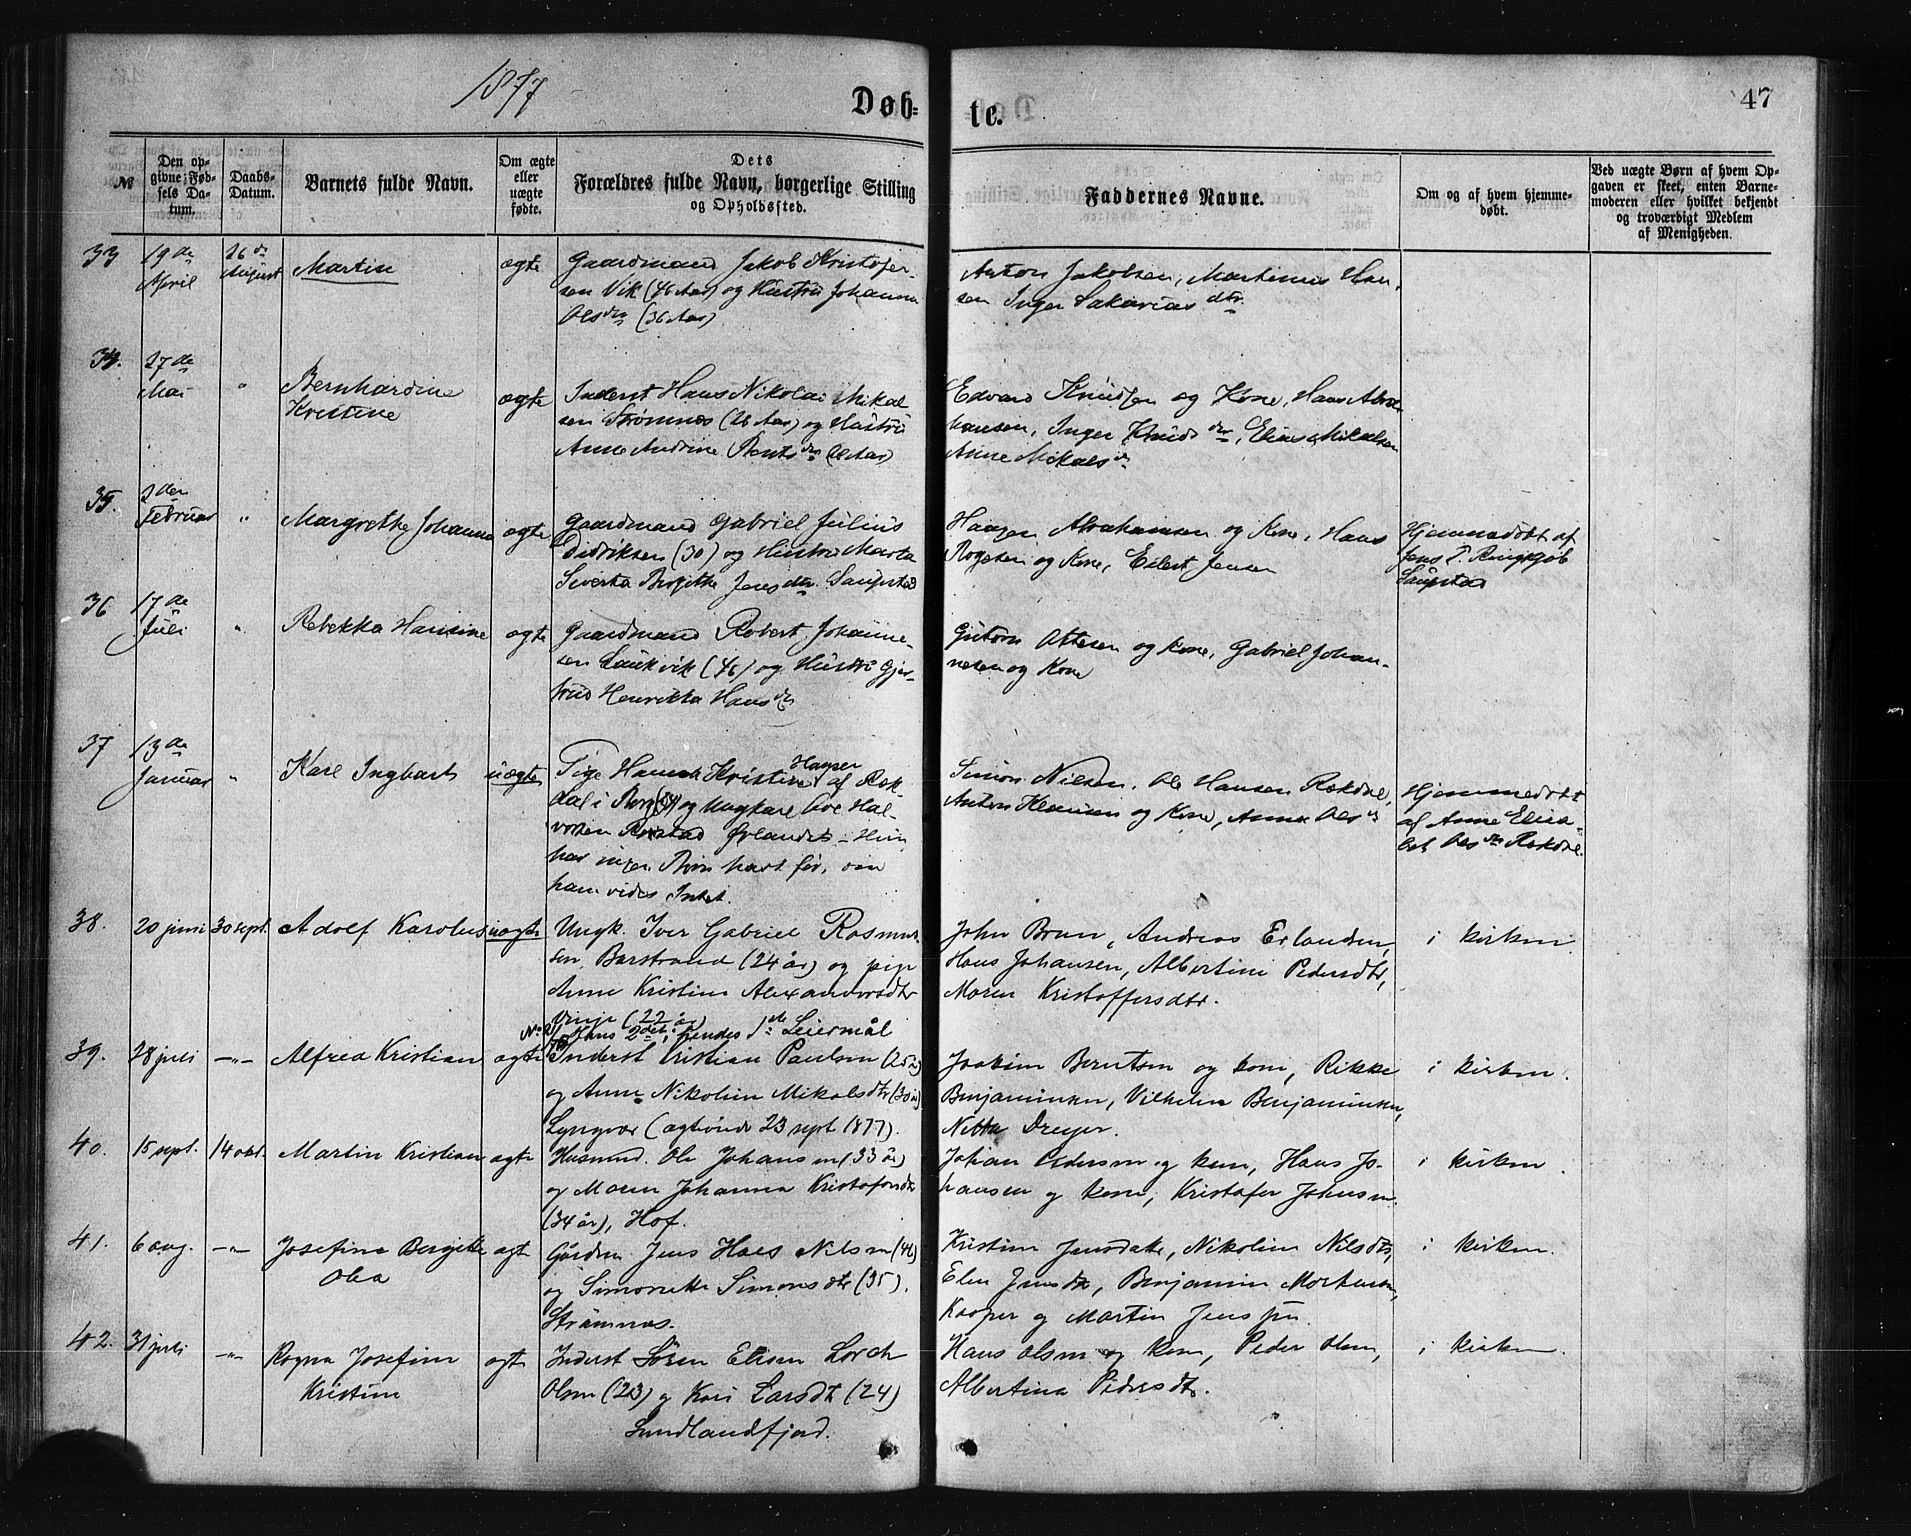 1877
Døb-
te.
47
№
Den op-
givne Fød-
sels Da-
tum.
Daabs-
Datum.
Barnets fulde Navn.
Om ægte
eller
uægte
fødte.
Dets
Forældres fulde Navn, borgerlige Stilling
og Opholdssted.
Faddernes Navne.
Om og af hvem hjemme-
døbt.
Ved uægte Børn af hvem Op-
gaven er skeet, enten Barne-
moderen eller hvilket bekjendt
og troværdigt Medlem
af Menigheden.
33
19de
April
26de
August
Martin
ægte
Gaardmand Jakob Kristofer-
sen Vik (46 Aar) og Hustru Johanna
Olsdtr (36 Aar)
Anton Jakobsen, Martinus Han-
sen Inger Sakariasdtr
34.
27de
Mai
"
Bernhardine
Kristine
ægte
Inderst Hans Nikolai Mikal
sen Strømnes (28 Aar) og Hustru
Anne Andrine Bentsdtr
Edvard Knudsen og Kone, Hans Abra-
hamsen, Inger Knudsdtr, Elias Mikalsen
Anne Mikalsdtr
35.
2den
Februar
"
Margrethe Johanna
ægte
Gaardmand Gabriel Julius
Didriksen (30) og Hustru Marta
Siverta Birgitte Jensdtr. Saupstad
Haagen Abrahamsen og Kone, Hans
og Kone, Edert Jensen
Hjemmedøbt af
Jens P. Ringkjøb
Saupstad
36
17de
Juli
"
Rebekka Hansine
ægte
Gaardmand Robert Johanne-
sen Laukvik (46) og Hustru Gjer-
trud Henrikka Hansdtr
Guttorm Ottesen og Kone, Gabriel Johan-
nesen og Kone
37
13de
Januar
"
Karl Ingbart
uægte
Hansen
Pige Hanna Kristine af Rok-
dal i Borge og Ungkarl Ove Hal-
vorsen Rørstad Ørlandet. Hun
har ingen Børn havt før, om
ham vides Intet.
Simon Nilsen, Ole Hansen Rokdal,
Anton Klausen og Kone, Anna Olsdtr
Hjemmedøbt
af Anne Elisa-
bet Olsdtr Rokdal.
38.
20 juni
30 sept.
Adolf Karolus
uægte
Ungk. Iver Gabriel Rasmus-
sen, Barstrand (24 år) og pige
Anne Kristine Alexandersdtr
Vinje (22 år)
Hans 2det, hendes 1ste Leiermål
John Brun, Andreas Erlandsen,
Hans Johansen, Albertine Pedersdtr,
Maren Kristoffersdtr.
i kirken
39.
28 juli
—"—
Alfred Kristian
ægte
Inderst Kristian Paulsen (25 år)
og Anne Nikoline Mikalsdtr (30 år)
Lyngvær (ægtviede 23 sept 1877).
Joakim Berntsen og kone, Rikke
Benjaminsen, Vilhelm Benjaminsen,
Nikka Dreyer.
i kirken.
40.
15 sept.
14 okt.
Martin Kristian
ægte
Husmd. Ole Johansen (33 år)
og Maren Johanna Kristofersdtr
(34 år), Hof.
Johan Pedersen og kone, Hans Jo-
hansen og kone, Kristofer Johnsen.
i kirken.
41.
6 aug.
—"—
Josefine Bergitte
Olea
ægte
Gårdm. Jens Haes Nilsen (46)
og Simonette Simonsdtr (35).
Strømnæs.
Kristine Jensdatr, Nikoline Nilsdtr,
Elen Jensdtr, Benjamin Mortensen,
Kasper og Martin Jenssen.
i kirken.
42.
31 juli
—"—
Ragna Josefine
Kristine
ægte
Inderst Sören Elisen Lorch
Olsen (23) og Kari Larsdtr (24)
Sundlandsfjord.
Hans Olsen og kone, Peder Olsen,
Albertina Pedersdtr.
i kirken.